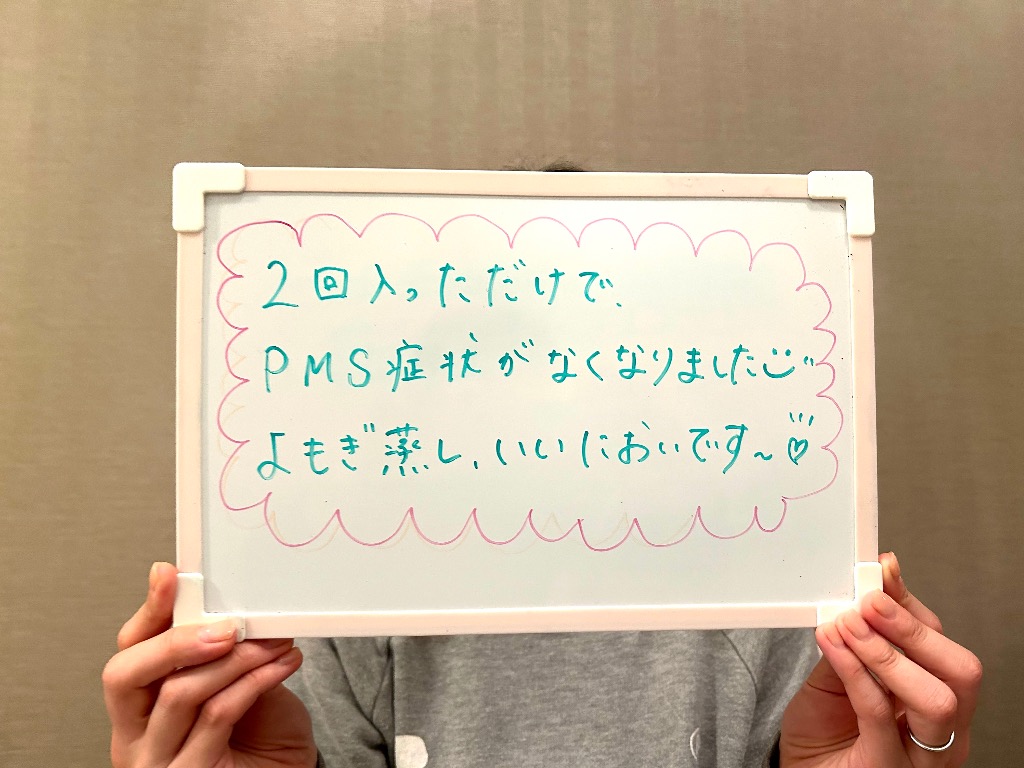 2回入っただけで、
PMS症状がなくなりました
よもぎ蒸し、いいにおいです~♡